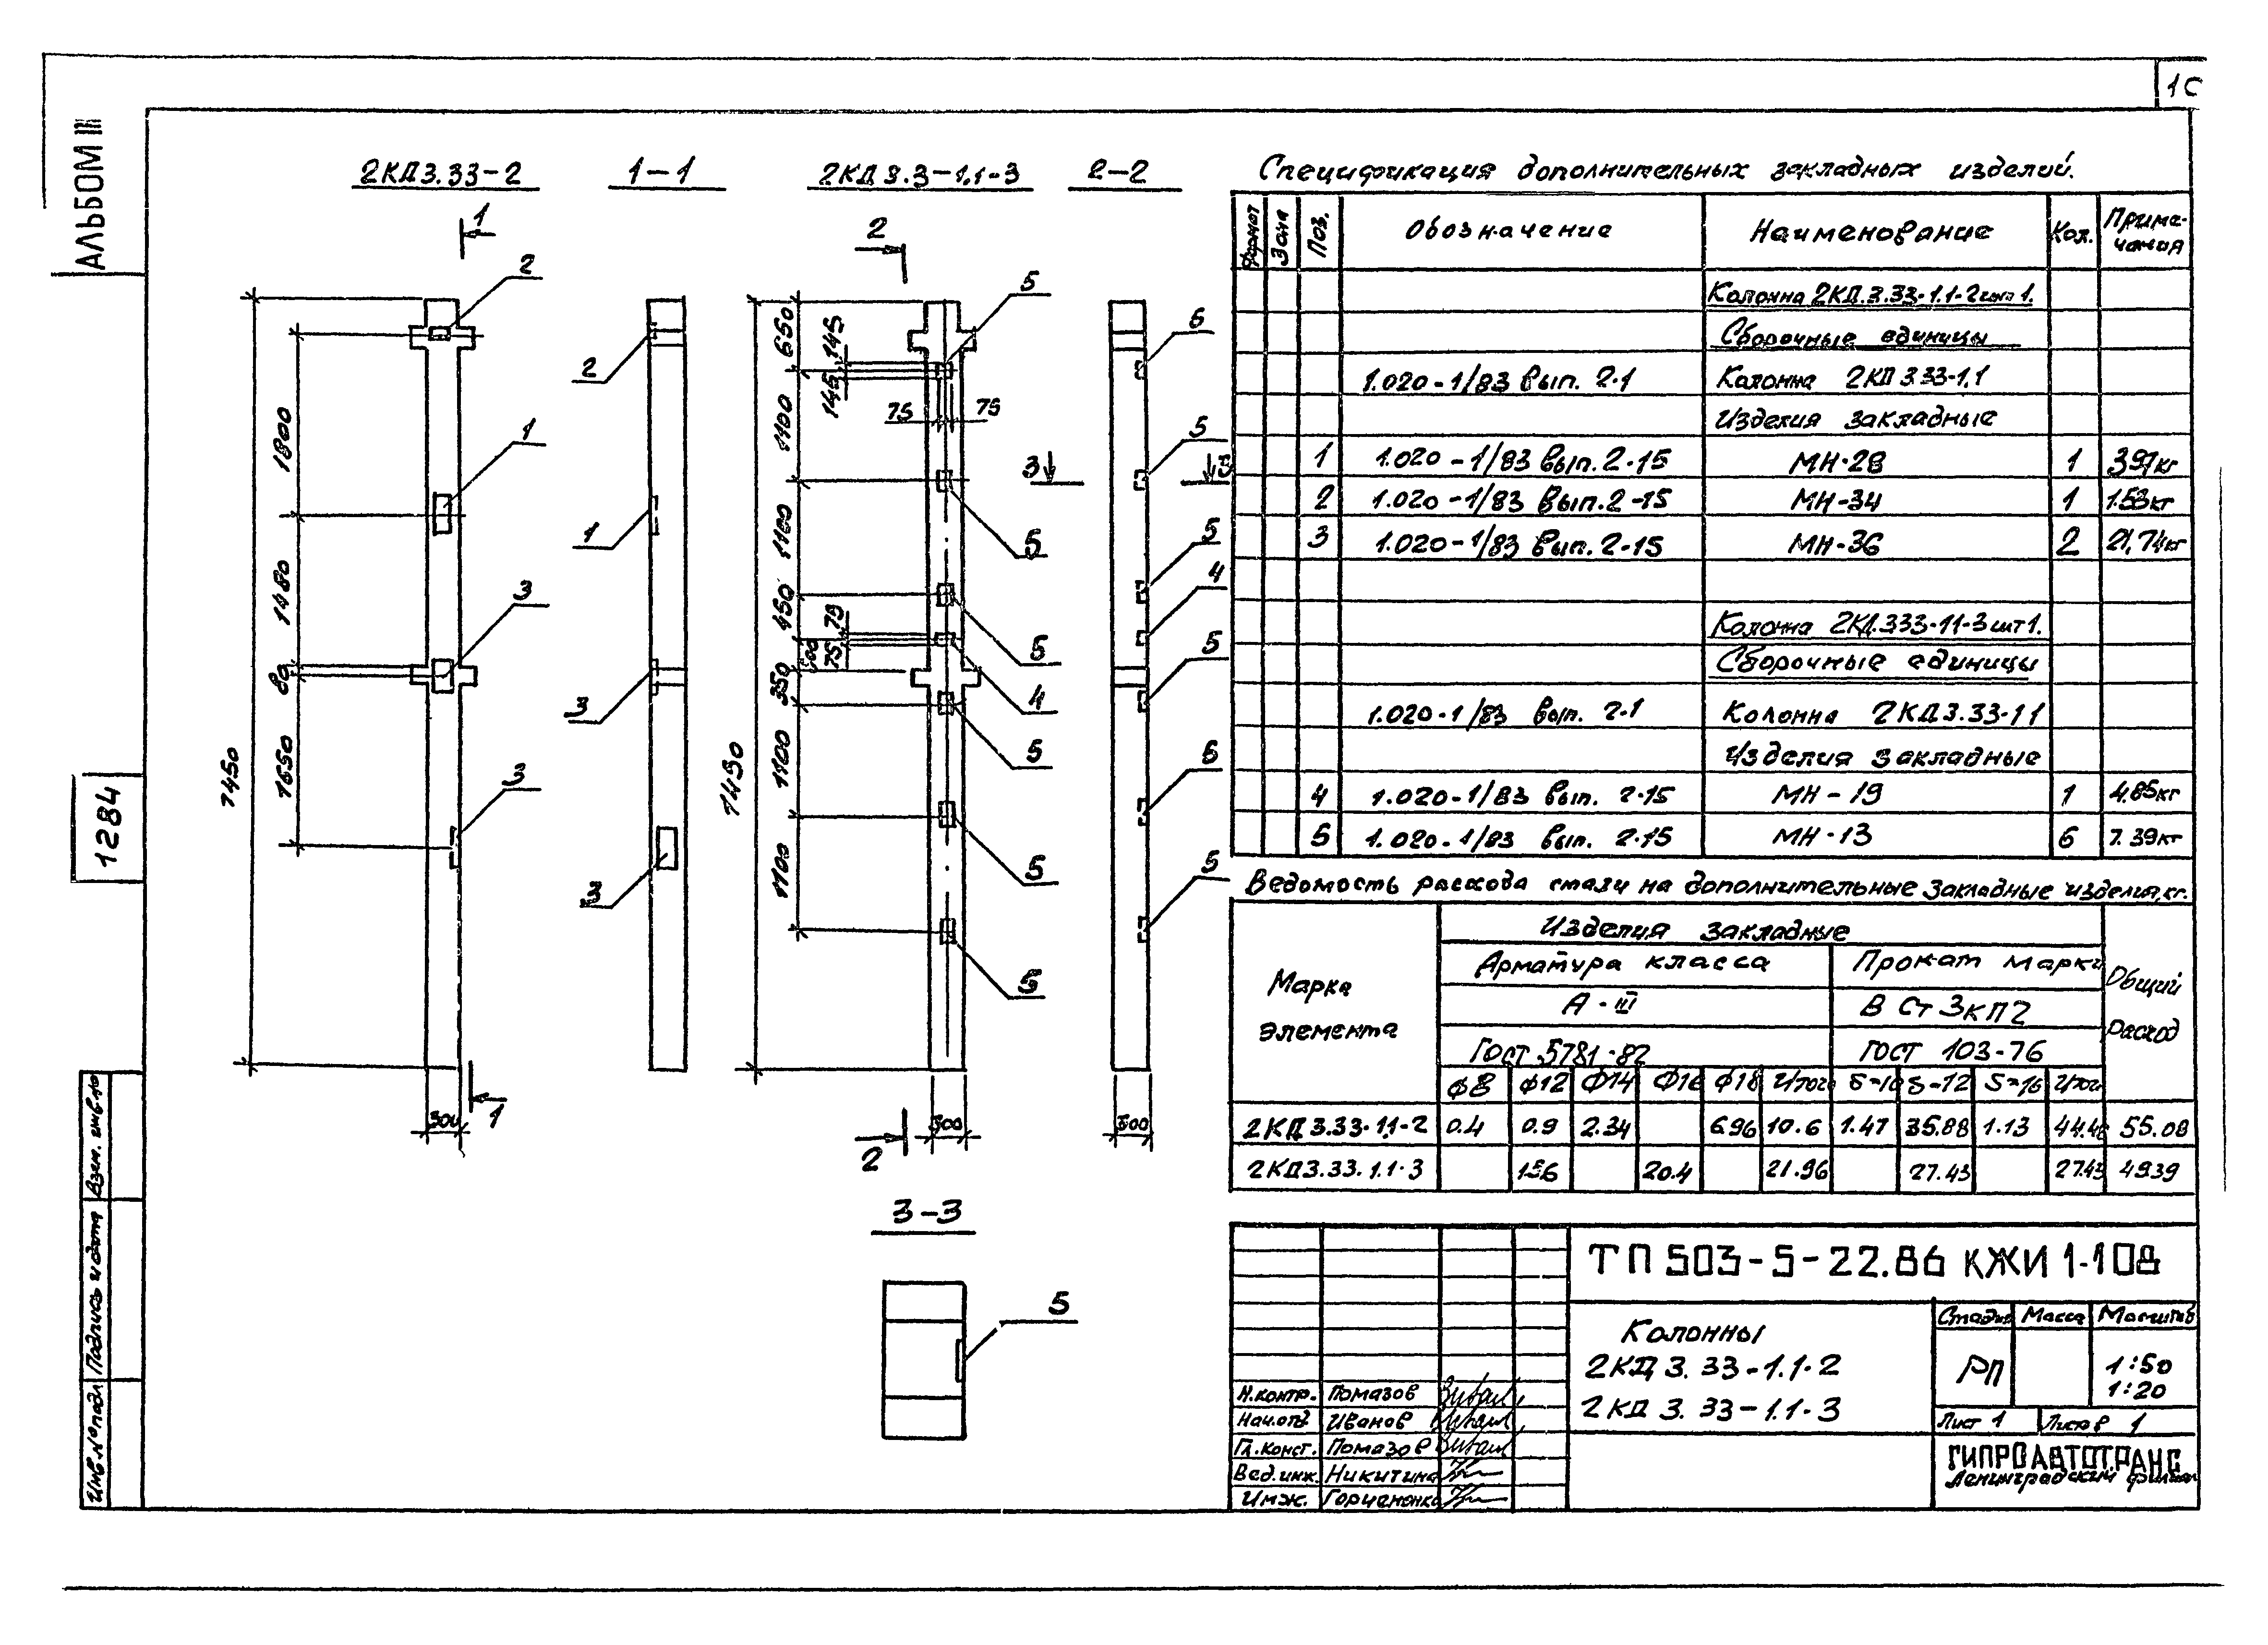 1С
АЛЬБОМ III
1284
Взам. инв. №
Подпись и дата
Инв. № подл
2КД3.33-2
1-1
2КД 3.3-1.1-3
2-2
1
2
1
3
3
7450
1800
1480
80
1650
300
1
2
1
3
3
2
5
650
145
145
1100
75
75
1100
450
75
75
350
1100
1100
7450
5
5
4
5
5
5
300
2
3
5
5
4
5
5
5
300
3-3
5
Спецификация дополнительных закладных изделий.
Формат Зона Поз. Обозначение Наименование Кол. Приме-чания
Колонна 2КД.3.33-1.1-2 шт 1.
Сборочные единицы
1.020-1/83 Вып. 2-1 Колонна 2КД 3.33-1.1
Изделия закладные
1 1.020-1/83 Вып. 2-15 МН-28 1 3.97кг
2 1.020-1/83 Вып. 2-15 МН-34 1 1.53кг
3 1.020-1/83 Вып. 2-15 МН-36 2 21,74кг
Колонна 2КД.333-11-3 шт 1.
Сборочные единицы
1.020-1/83 Вып. 2-1 Колонна 2КД3.33-11
Изделия закладные
4 1.020-1/83 Вып. 2-15 МН-19 1 4.85кг
5 1.020-1/83 Вып. 2-15 МН-13 6 7.39кг
Ведомость расхода стали на дополнительные закладные изделия, кг.
Марка элемента
Изделия закладные
Общий расход
Арматура класса Прокат марки
А-III В Ст 3кп2
ГОСТ 5781-82 ГОСТ 103-76
ф8 ф12 ф14 ф16 ф18 Итого δ=10 δ=12 δ=16 Итого
2КД 3.33-1.1-2 0.4 0.9 2.34 6.96 10.6 1.47 35.88 1.13 44.48 55.08
2КД3.33.1.1-3 1.56 20.4 21.96 27.43 27.43 49.39
ТП 503-5-22.86 КЖИ 1-10д
Колонны
2КД 3.33-1.1-2
2КД 3.33-1.1-3
Стадия Масса Масштаб
РП 1:50
1:20
Лист 1 Листов 1
ГИПРОАВТОТРАНС
Ленинградский филиал
Н.контр. Помазов
Нач.отд Иванов
Гл.конст. Помазов
Вед.инж. Никитина
Инж. Горчененко